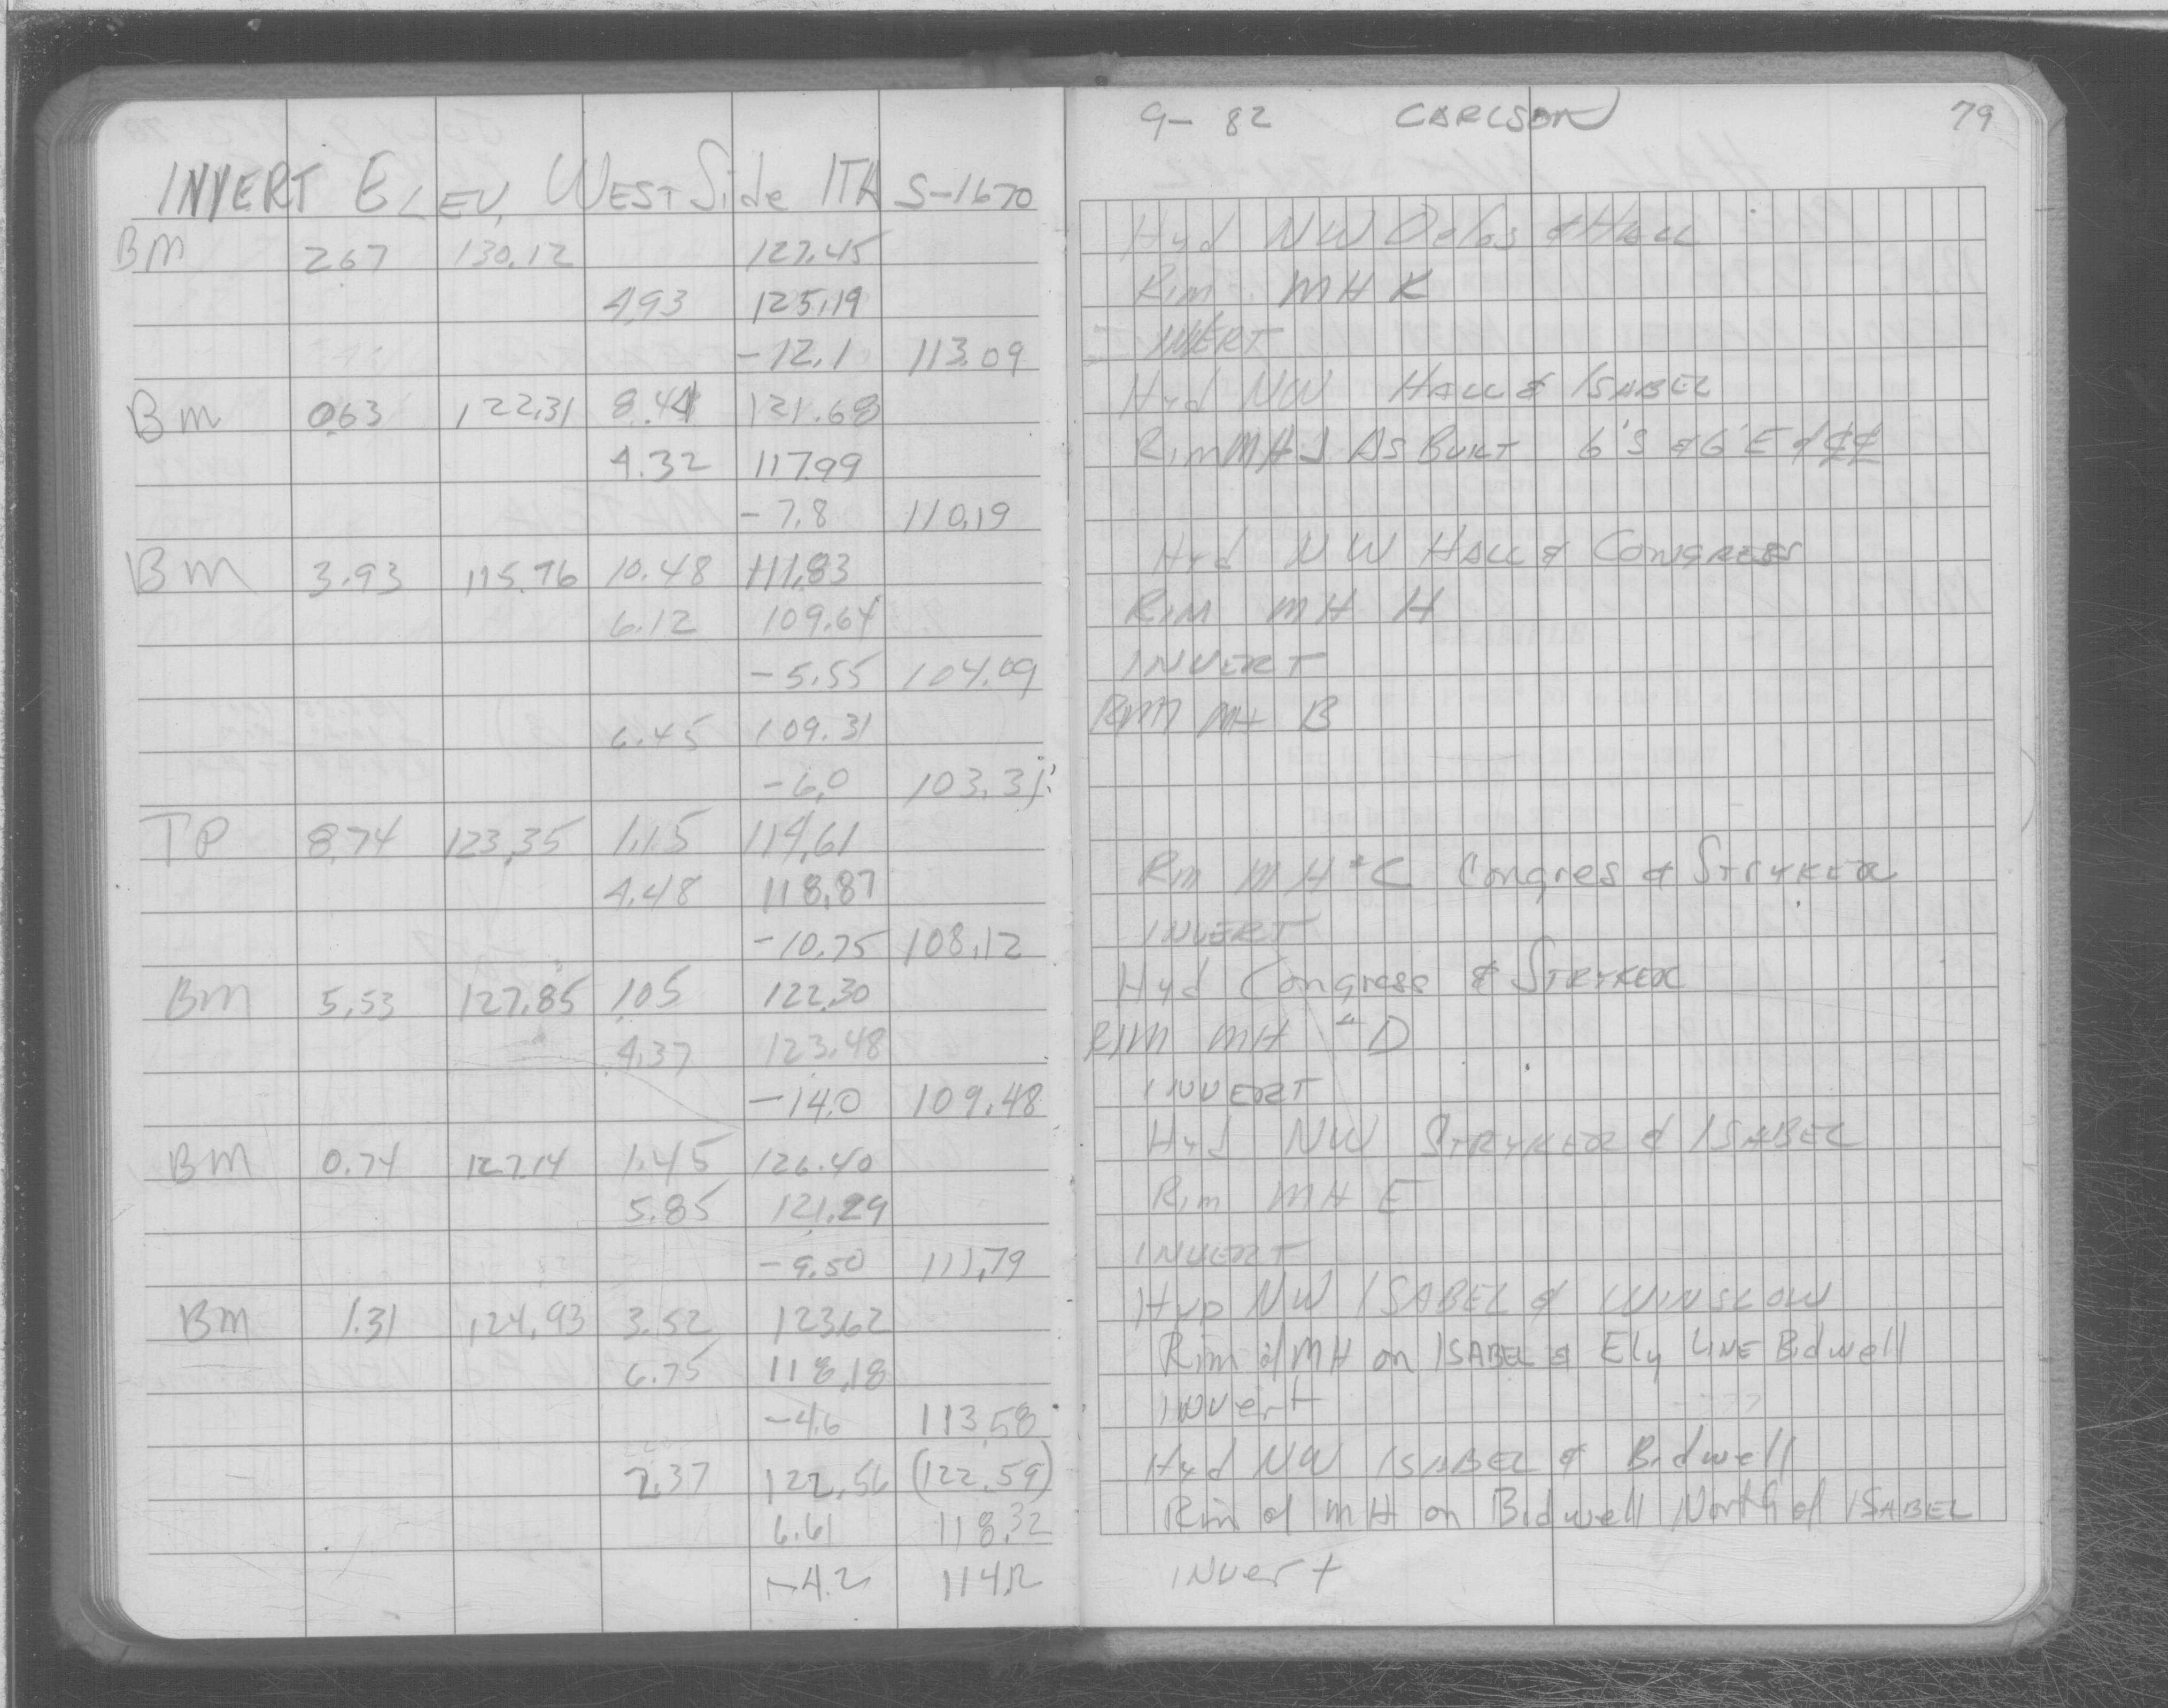 INVERT ELEV, WEST Side ITH S-1670
BM 2.67 130.12 127.45
4.93 125.19
-12.1 113.09
Bm 0.63 122.31 8.44 121.68
4.32 117.99
-7.8 110.19
Bm 3.93 115.76 10.48 111.83
6.12 109.64
-5.55 104.09
6.45 109.31
-6.0 103.31
TP 8.74 123.35 1.15 114.61
4.48 118.87
-10.75 108.12
Bm 5.53 127.85 1.05 122.30
4.37 123.48
-14.0 109.48
BM 0.74 127.14 1.45 126.40
5.85 121.29
-9.50 111.79
BM 1.31 124.93 3.52 123.62
6.75 118.18
-4.6 113.58
2.37 122.56 (122.59)
6.61 118.32
-4.2 114.12
9-82 CARLSON 79
Hyd NW Delos & HALL
Rim MH K
INVERT
Hyd NW HALL & ISABEL
Rim MH J AS BUILT 6'S & 6'E of ₵₵
Hyd NW HALL & CONGRESS
RIM MH H
INVERT
RIM MH B
Rim MH "C Congres & STRYKER
INVERT
Hyd Congress & STRYKER
RIM MH "D
INVERT
Hyd NW STRYKER & ISABEL
Rim MH E
INVERT
HyD NW ISABEL & WINSLOW
Rim of MH on ISABEL & Ely LINE Bidwell
INVert
Hyd NW ISABEL & Bidwell
Rim of MH on Bidwell North of ISABEL
INVert